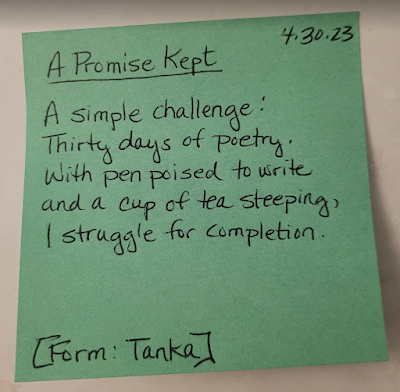 4.30.23
A Promise Kept
A simple challenge:
Thirty days of poetry.
With pen poised to write
and a cup of tea steeping,
I struggle for completion.
[Form: Tanka]